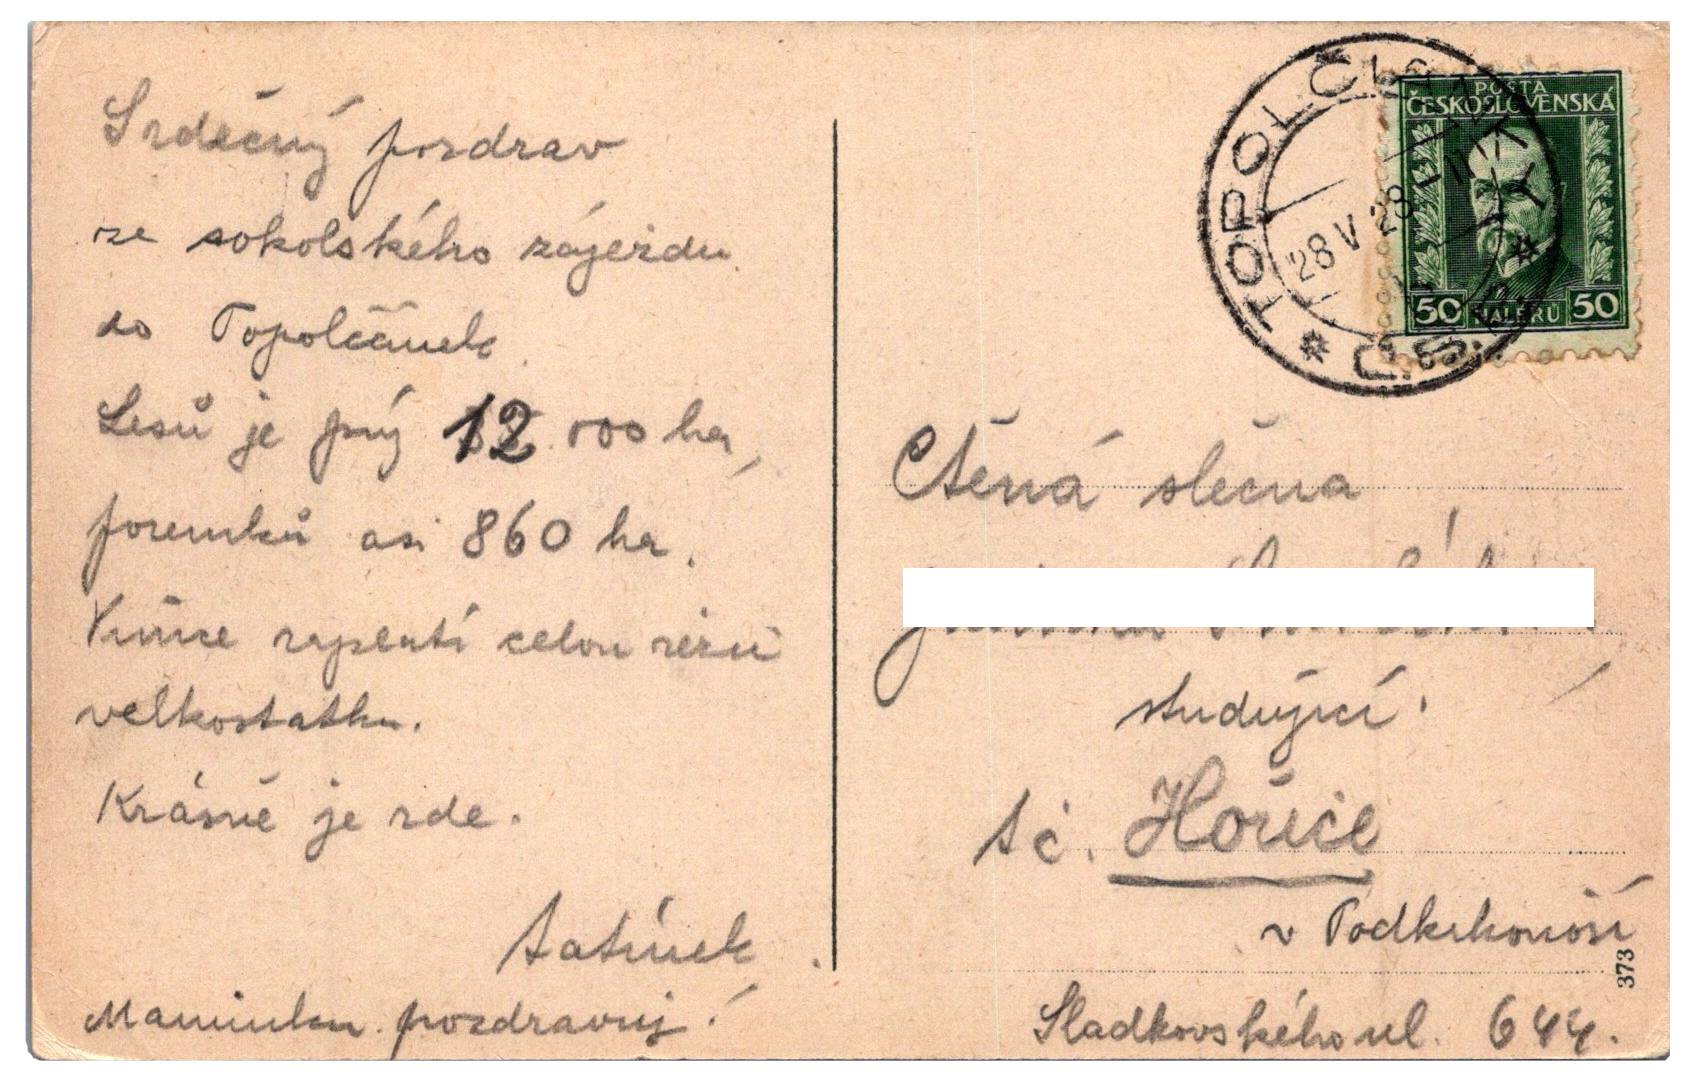 Srdečný pozdrav
ze sokolského zájezdu
do Topolčánek
Lesů je prý 12.000 ha,
pozemků asi 860 ha.
Vinice zaplatí celou režii
velkostatku.
Krásně je zde.
tatínek.
Maminku pozdravuj!
POŠTA
ČESKOSLOVENSKÁ
50 HALÉŘŮ 50
TOPOLČIANKY
28 V 28
Č.S.R.
Ctěná slečna
studující
t č. Hořice
v Podkrkonoší
373
Sladkovského ul. 644.